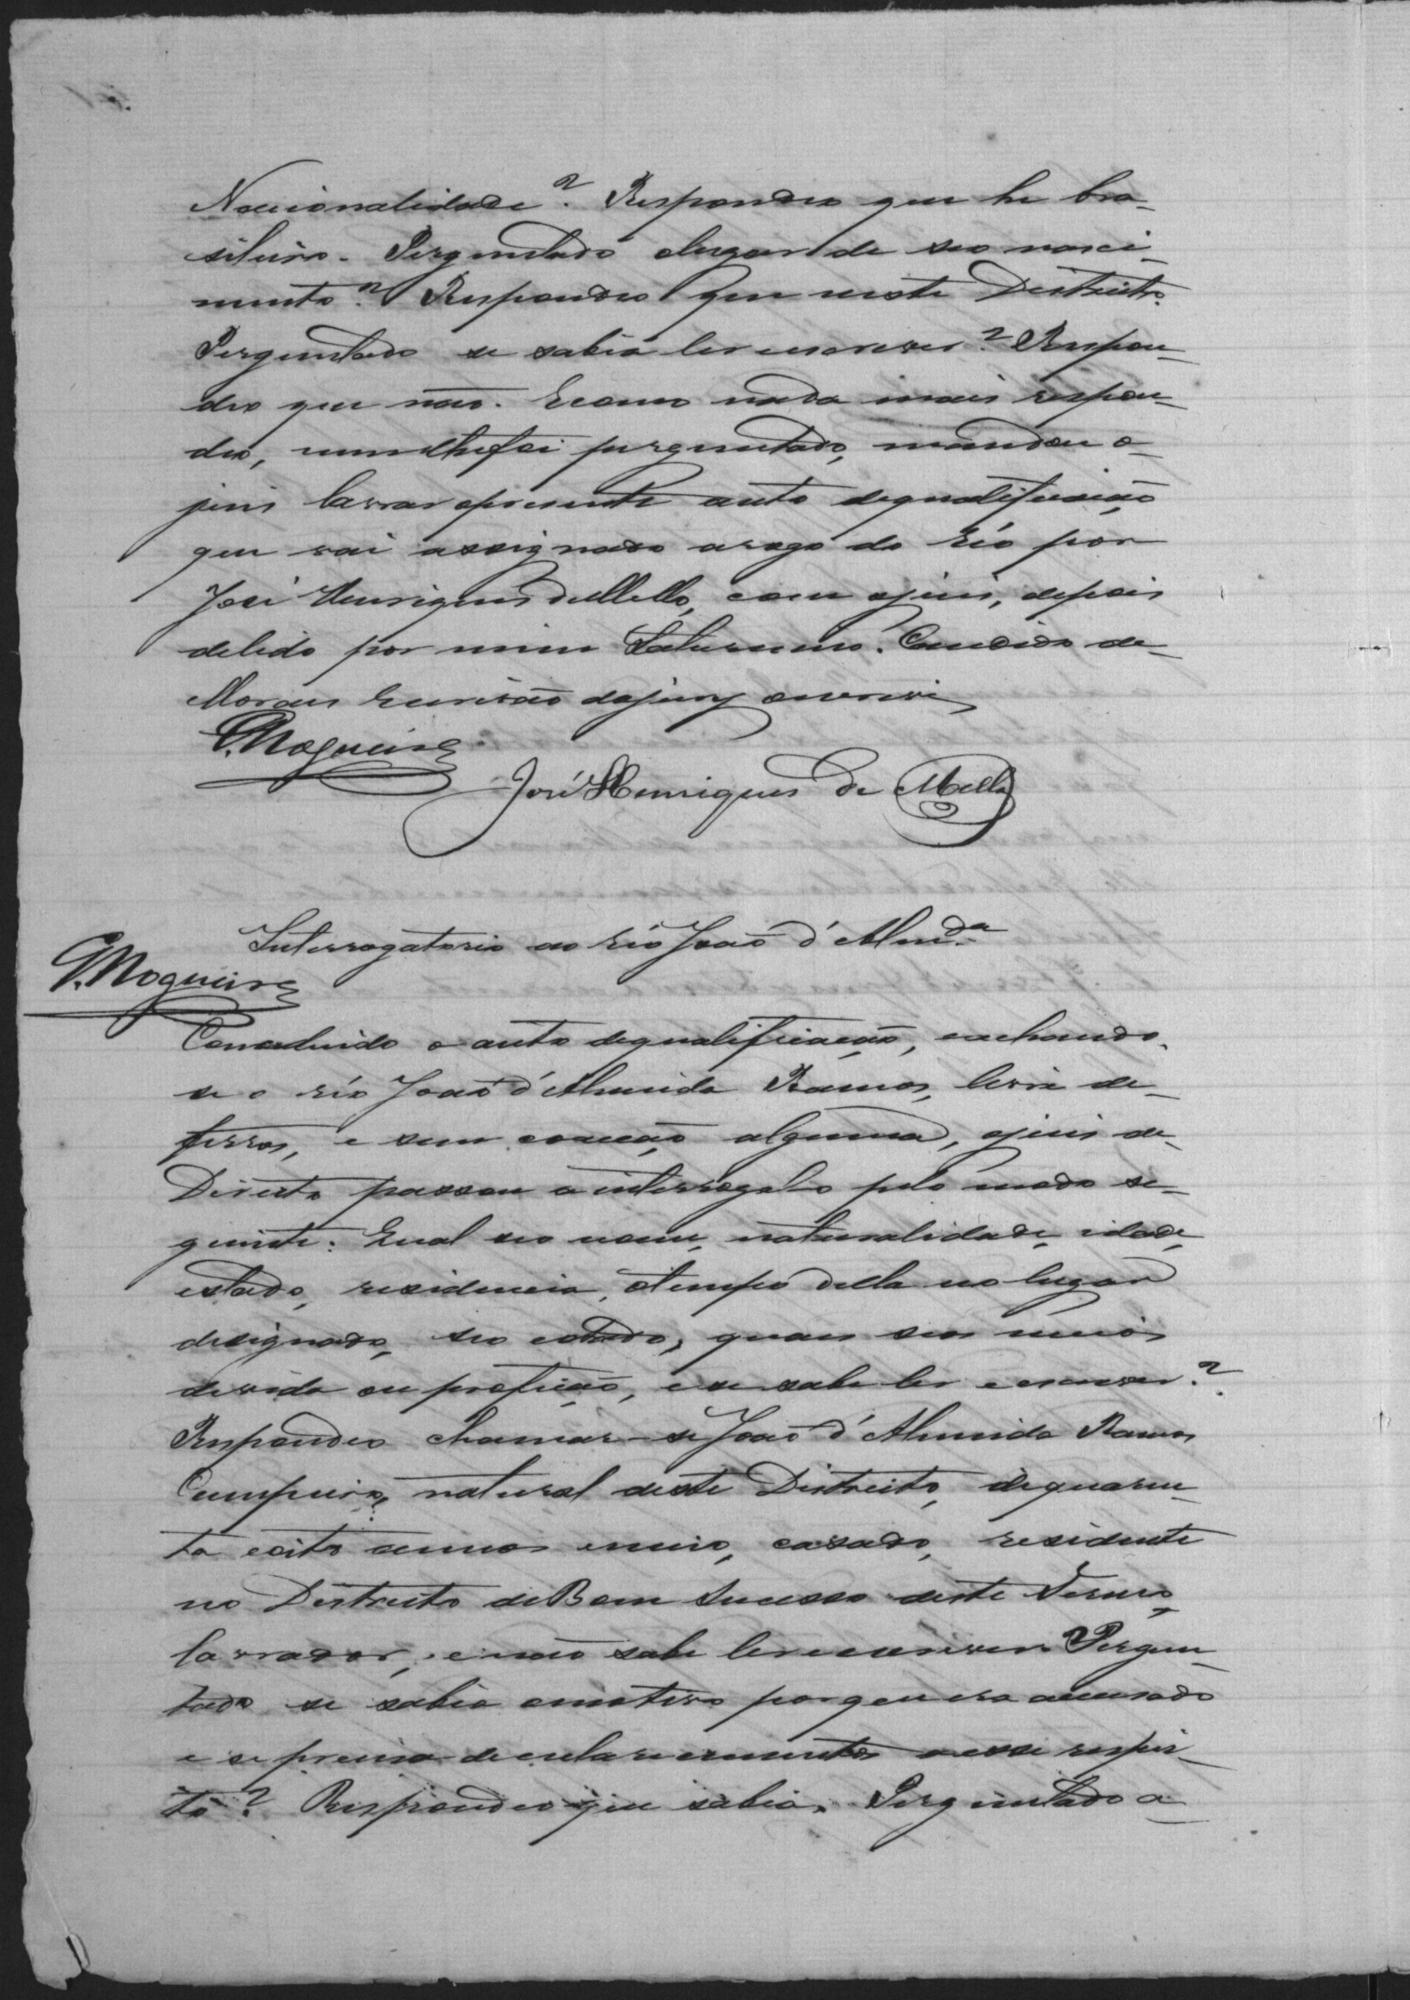 Nacionalidade? Respondeo que he bra-
sileiro. Perguntado olugar de seo nasci-
mento? Respondeo que neste Districto.
Perguntado se sabia ler eescrever? Respon-
deo que não. Ecomo nada mais respon-
deo, nem lhe foi perguntado, mandou o
juis lavrar opresente auto dequalificação
que vai assignado arogo do réo por
José Henriques deMello, com ojuis, depois
delido por mim Saturnino Candido de
Moraes Escrivão dojury oescrevi
P. Nogueira
José Henriques de Mello
Interrogatorio ao réo João d'Almda
P. Nogueira
Concluido o auto dequalificação, eachando-
se o réo João d'Almeida Ramos, livre de
ferros, e sem coacção alguma, ojuis de
Direito passou a interrogal-o pelo modo se-
guinte: Qual seo nome, naturalidade, idade,
estado, residencia, otempo della no lugar
designado, seo estado, quaes seos meios
devida ou profição, ese sabe ler e escrever?
Respondeo chamar-se João d'Almeida Ramos
natural deste Districto, dequaren-
ta eoito annos emeio, casado, residente
no Districto deBom Sucesso deste Termo,
lavrador, enão sabe ler eescrever. Pergun-
tado se sabia omotivo porque era accusado
e se precisa de esclarecimentos aesse respei-
to? Respondeo que sabia. Perguntado a